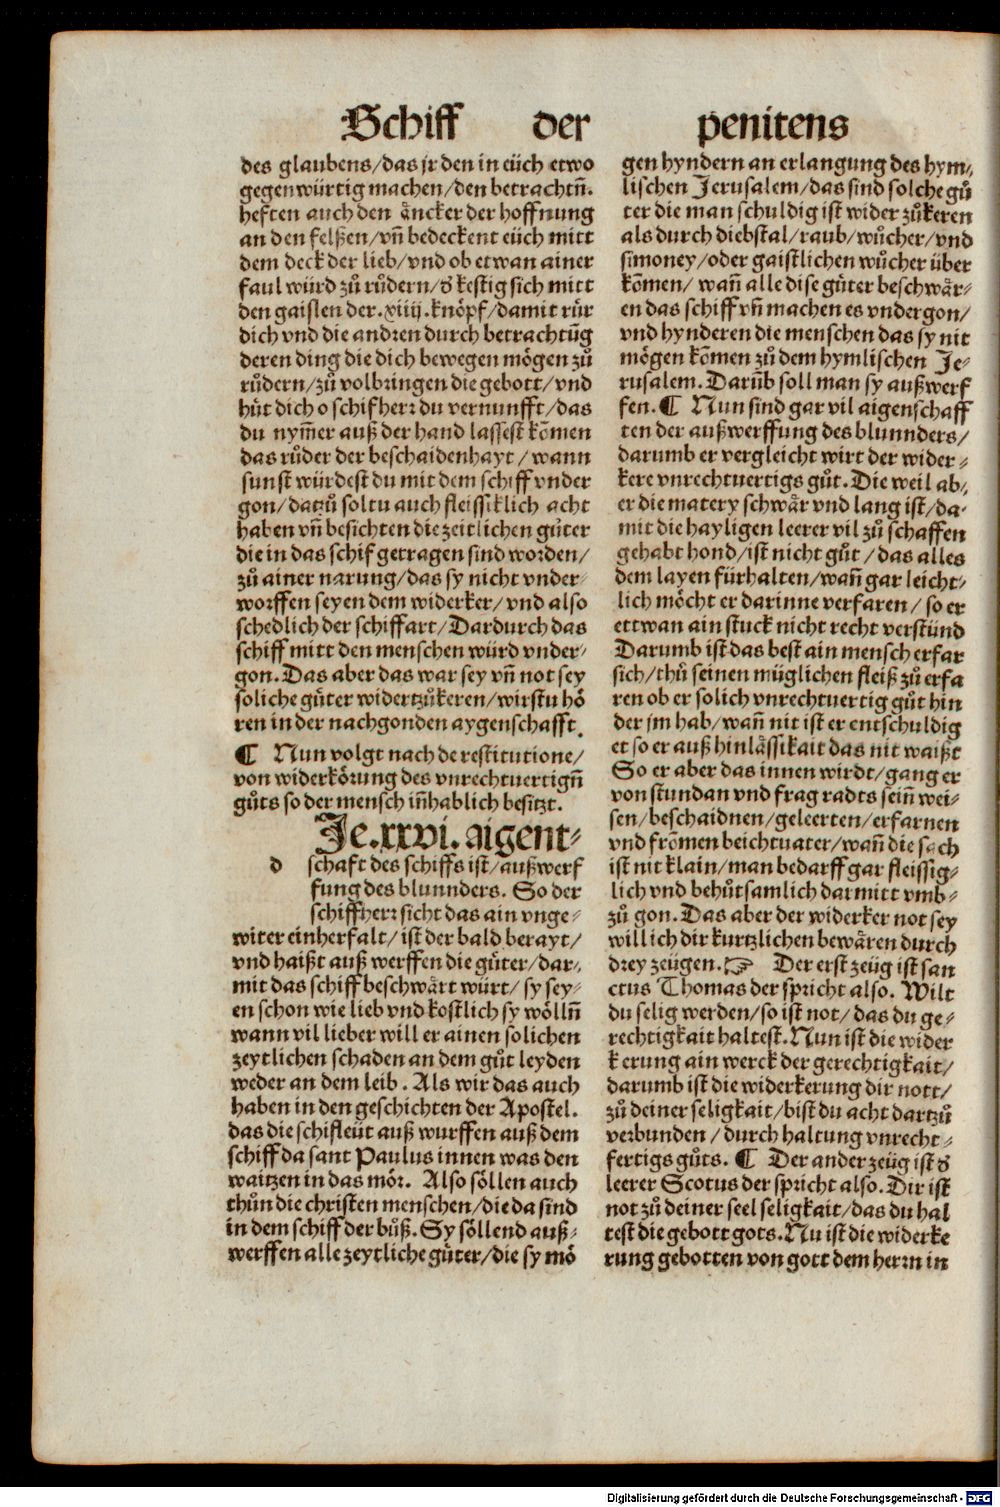 Schiff der penitens
des glaubens/das jr den in eüch etwo
gegenwürtig machen/den betrachtñ.
heften auch den äncker der hoffnung
an den felßen/vñ bedeckent eüch mitt
dem deck der lieb/vnd ob etwan ainer
faul würd zů růdern/d kestig sich mitt
den gaislen der.xiiij.knöpf/damit rür
dich vnd die andren durch betrachtūg
deren ding die dich bewegen mögen zů
růdern/zů volbringen die gebott/vnd
hüt dich o schifherr du vernunfft/das
du nym̄er auß der hand lassest kōmen
das růder der beschaidenhayt/wann
sunst würdest du mit dem schiff vnder
gon/datzů soltu auch fleissiklich acht
haben vñ besichten die zeitlichen güter
die in das schif getragen sind worden/
zů ainer narung/das sy nicht vnder-
worffen seyen dem widerker/vnd also
schedlich der schiffart/Dardurch das
schiff mitt den menschen würd vnder-
gon. Das aber das war sey vñ not sey
soliche güter widertzůkeren/wirstu hö
ren in der nachgonden aygenschafft.
¶ Nun volgt nach de restitutione/
von widerkörung des vnrechtuertigñ
gůts so der mensch iñhablich besitzt.
Je.xxvi.aigent-
d schaft des schiffs ist/außwerf
fung des blunnders. So der
schiffherr sicht das ain vnge-
witer einherfalt/ist der bald berayt/
vnd haißt auß werffen die güter/dar-
mit das schiff beschwärt würt/sy sey-
en schon wie lieb vnd kostlich sy wöllñ
wann vil lieber will er ainen solichen
zeytlichen schaden an dem gůt leyden
weder an dem leib. Als wir das auch
haben in den geschichten der Apostel.
das die schifleüt auß wurffen auß dem
schiff da sant Paulus innen was den
waitzen in das mör. Also söllen auch
thůn die christen menschen/die da sind
in dem schiff der bůß. Sy söllend auß-
werffen alle zeytliche güter/die sy mö
gen hyndern an erlangung des hym-
lischen Jerusalem/das sind solche gů
ter die man schuldig ist wider zůkeren
als durch diebstal/raub/wůcher/vnd
simoney/oder gaistlichen wůcher über
kōmen/wañ alle dise güter beschwär-
en das schiff vñ machen es vndergon/
vnd hynderen die menschen das sy nit
mögen kōmen zů dem hymlischen Je-
rusalem. Darūb soll man sy außwerf
fen. ¶ Nun sind gar vil aigenschaff
ten der außwerffung des blunnders/
darumb er vergleicht wirt der wider-
kere vnrechtuertigs gůt. Die weil ab-
er die matery schwär vnd lang ist/da-
mit die hayligen leerer vil zů schaffen
gehabt hond/ist nicht gůt/das alles
dem layen fürhalten/wañ gar leicht-
lich möcht er darinne verfaren/so er
ettwan ain stuck nicht recht verstünd
Darumb ist das best ain mensch erfar
sich/thů seinen müglichen fleiß zů erfa
ren ob er solich vnrechtuertig gůt hin
der jm hab/wañ nit ist er entschuldig
et so er auß hinlässikait das nit waißt
So er aber das innen wirdt/gang er
von stundan vnd frag radts seiñ wei-
sen/beschaidnen/geleerten/erfarnen
vnd frōmen beichtuater/wañ die sach
ist nit klain/man bedarff gar fleissig-
lich vnd behůtsamlich darmitt vmb-
zů gon. Das aber der widerker not sey
will ich dir kurtzlichen bewären durch
drey zeügen. ☞ Der erst zeüg ist san
ctus Thomas der spricht also. Wilt
du selig werden/so ist not/das du ge-
rechtigkait haltest. Nun ist die wider
kerung ain werck der gerechtigkait/
darumb ist die widerkerung dir nott/
zů deiner seligkait/bist du acht dartzů
verbunden/durch haltung vnrecht-
fertigs gůts. ¶ Der ander zeüg ist d
leerer Scotus der spricht also. Dir ist
not zů deiner seel seligkait/das du hal
test die gebott gots. Nu ist die widerke
rung gebotten von gott dem herrn in
Digitalisierung gefördert durch die Deutsche Forschungsgemeinschaft - DFG